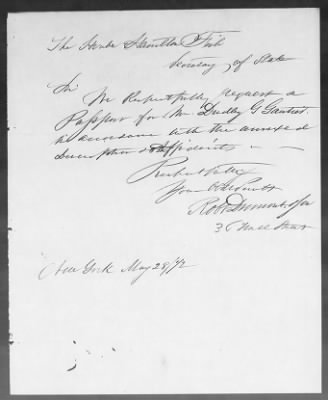 The Honble Hamilton Fish
Secretary of State
Sir
We Respectfully request a
Passport for Mr Dudley G Gautier
in accordance with the annexed
description & affidavits
Respectfully
Your Obt Servts
Robt Dumont &
36 Wall Street
New York May 29/72